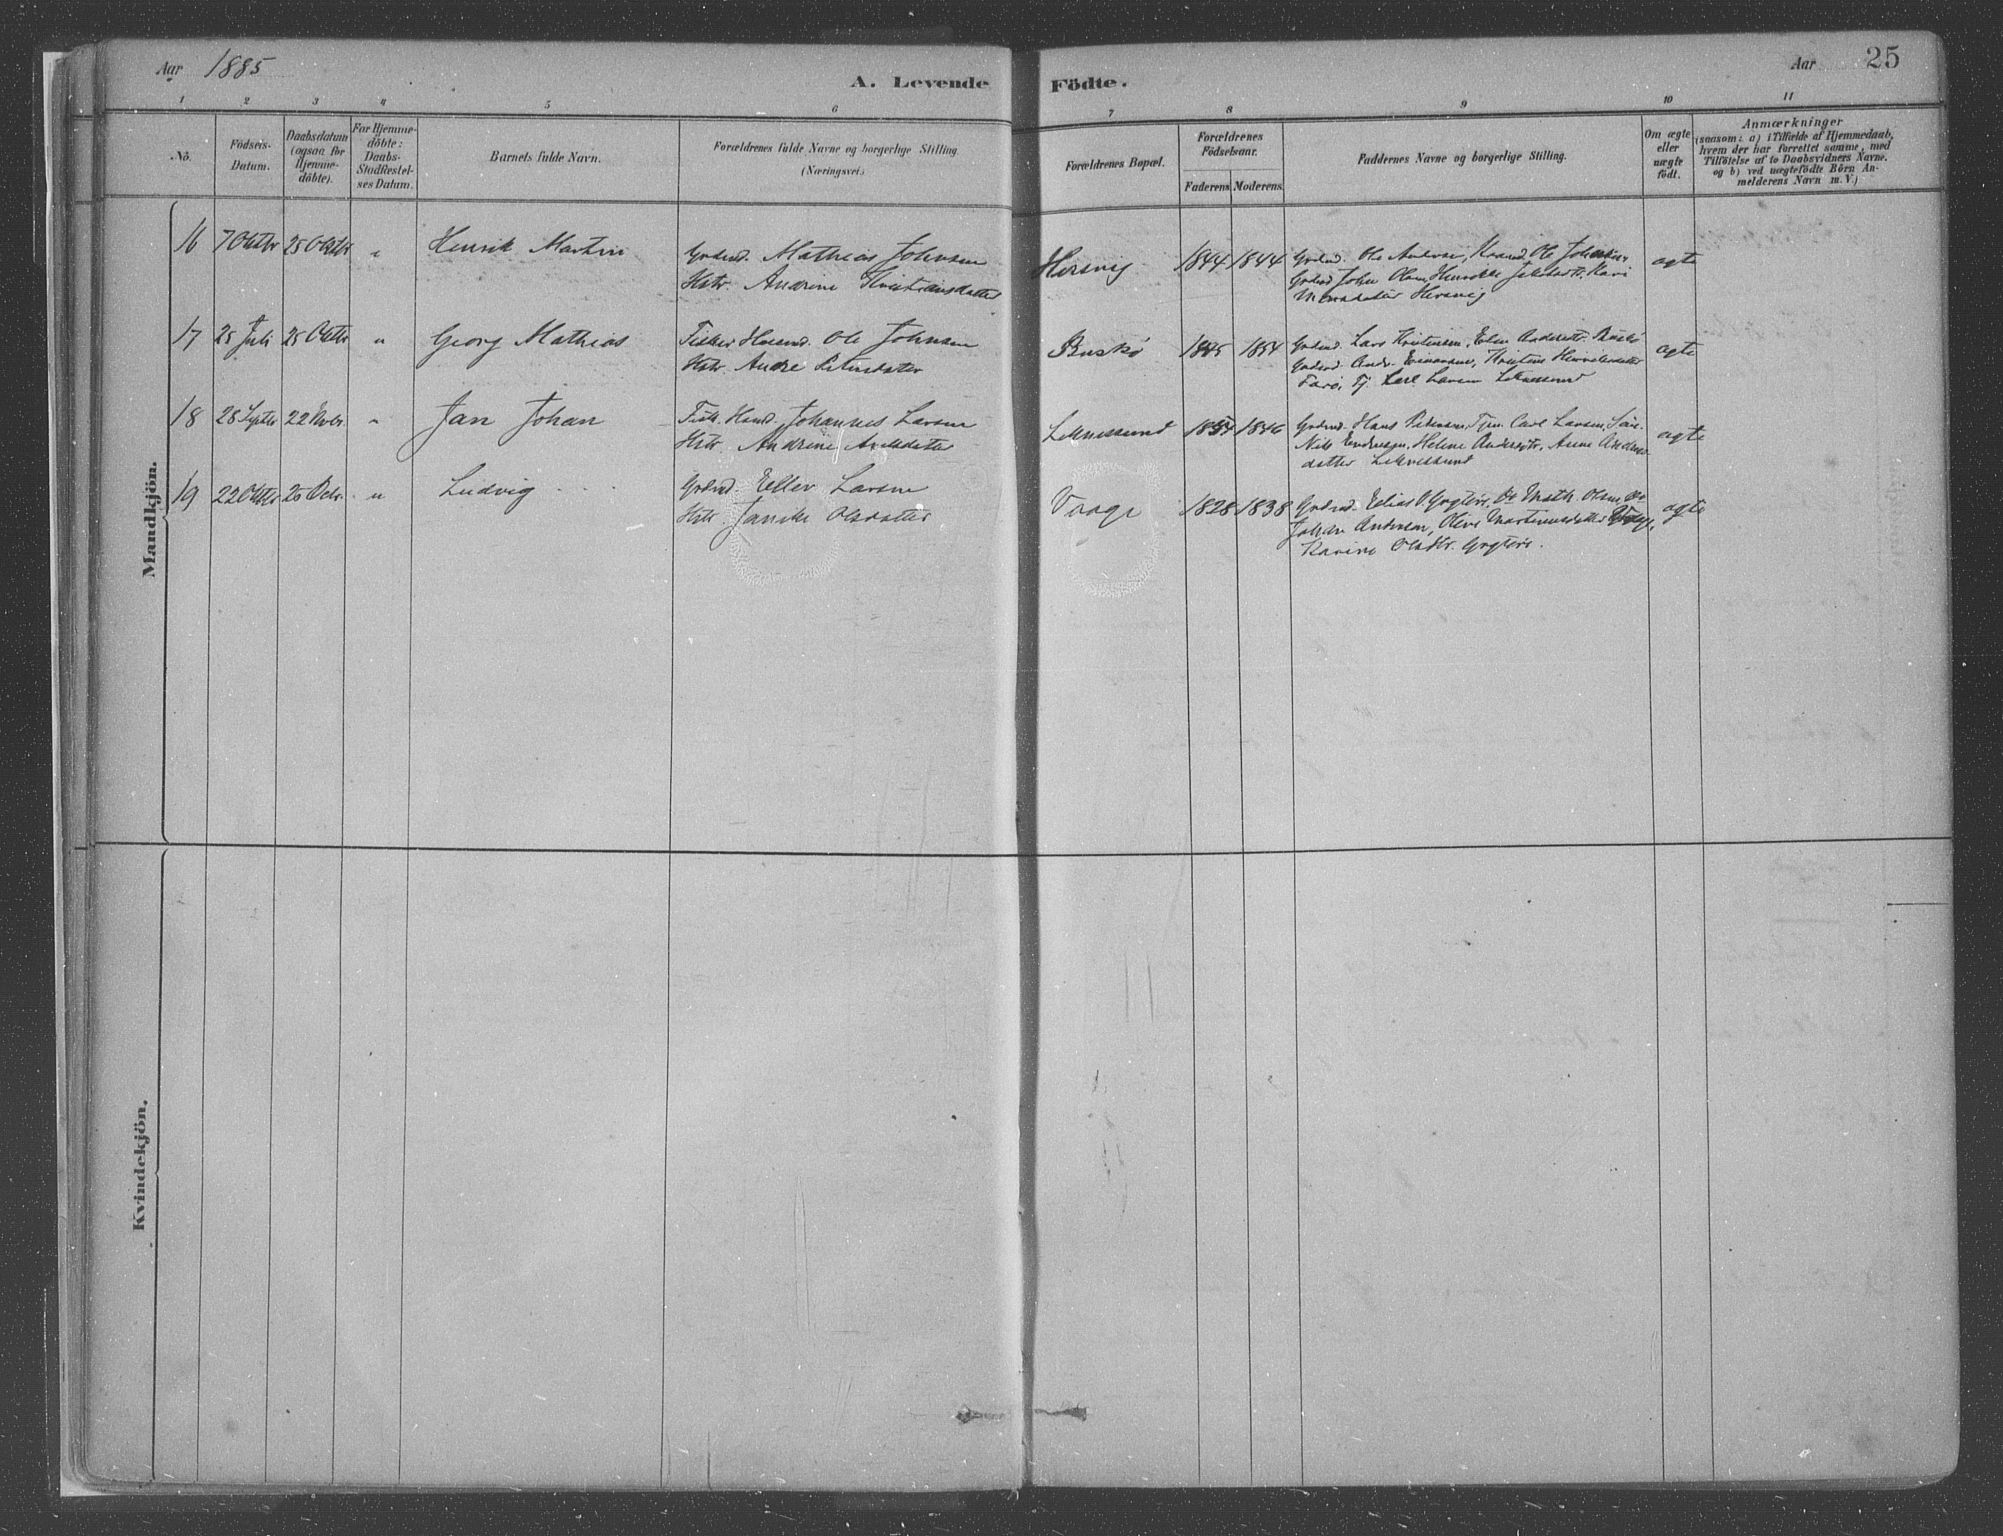 Aar 1885
A. Levende
Födte.
Aar
25
1 2 3 4 5 6
7 8 9 10 11
No.
Födsels-
Datum.
Daabsdatum
(ogsaa for
Hjemme-
döbte).
For Hjemme-
döbte:
Daabs-
Stadfæstel-
ses Datum.
Barnets fulde Navn.
Forældrenes fulde Navne og borgerlige Stilling
(Næringsvei.)
Forældrenes Bopæl.
Forældrenes
Födselsaar.
Faderens Moderens.
Faddernes Navne og borgerlige Stilling.
Om ægte
eller
uægte
födt.
Anmærkninger
(saasom: a) i Tilfælde af Hjemmedaab,
hvem der har forrettet samme, med
Tilföielse af to Daabsvidners Navne.
og b) ved uægtefödte Börn An-
melderens Navn m. V.)
Mandkjön.
16 7 Oktbr 25 Oktbr " Henrik Martin
Grdmd. Mathias Johnsen
Hstr. Andrine Kristiansdatter
Hersvig 1844 1844
Grdmd. Ole Andersen, Ole
Grdmd John Olsen,
Hersvig
ægte
17 25 Juli 25 Oktbr " Georg Mathias
Fisker Husmd. Ole Johnsen
Hstr. Andrea Petersdatter
Buskø 1845 1854
Grdmd. Lars Kristensen, Elen Andersdtr. Buskø
Grdmd Andr. Kristine
Færø, Tj. Carl Larsen Leknessund
ægte
18 28 Septbr 22 Novbr. " Jan Johan
Fisk. Husmd. Johannes Larsen
Hstr. Andrine Axelsdatter
Leknessund 1846
Grdmd. Hans Pedersen, Tjen. Carl Larsen,
Nils Endresen, Helene Andersdtr, Anne Anders-
datter Leknessund
ægte
19 22 Oktbr " Ludvig
Grdmd. Eller Larsen
Hstr. Jansike Olsdatter
Vaage 1828 1838
Grdmd. Elias Math. Olsen
Johan Andersen, Oline Martinusdatter
Karine Olsdtr.
ægte
Kvindekjön.